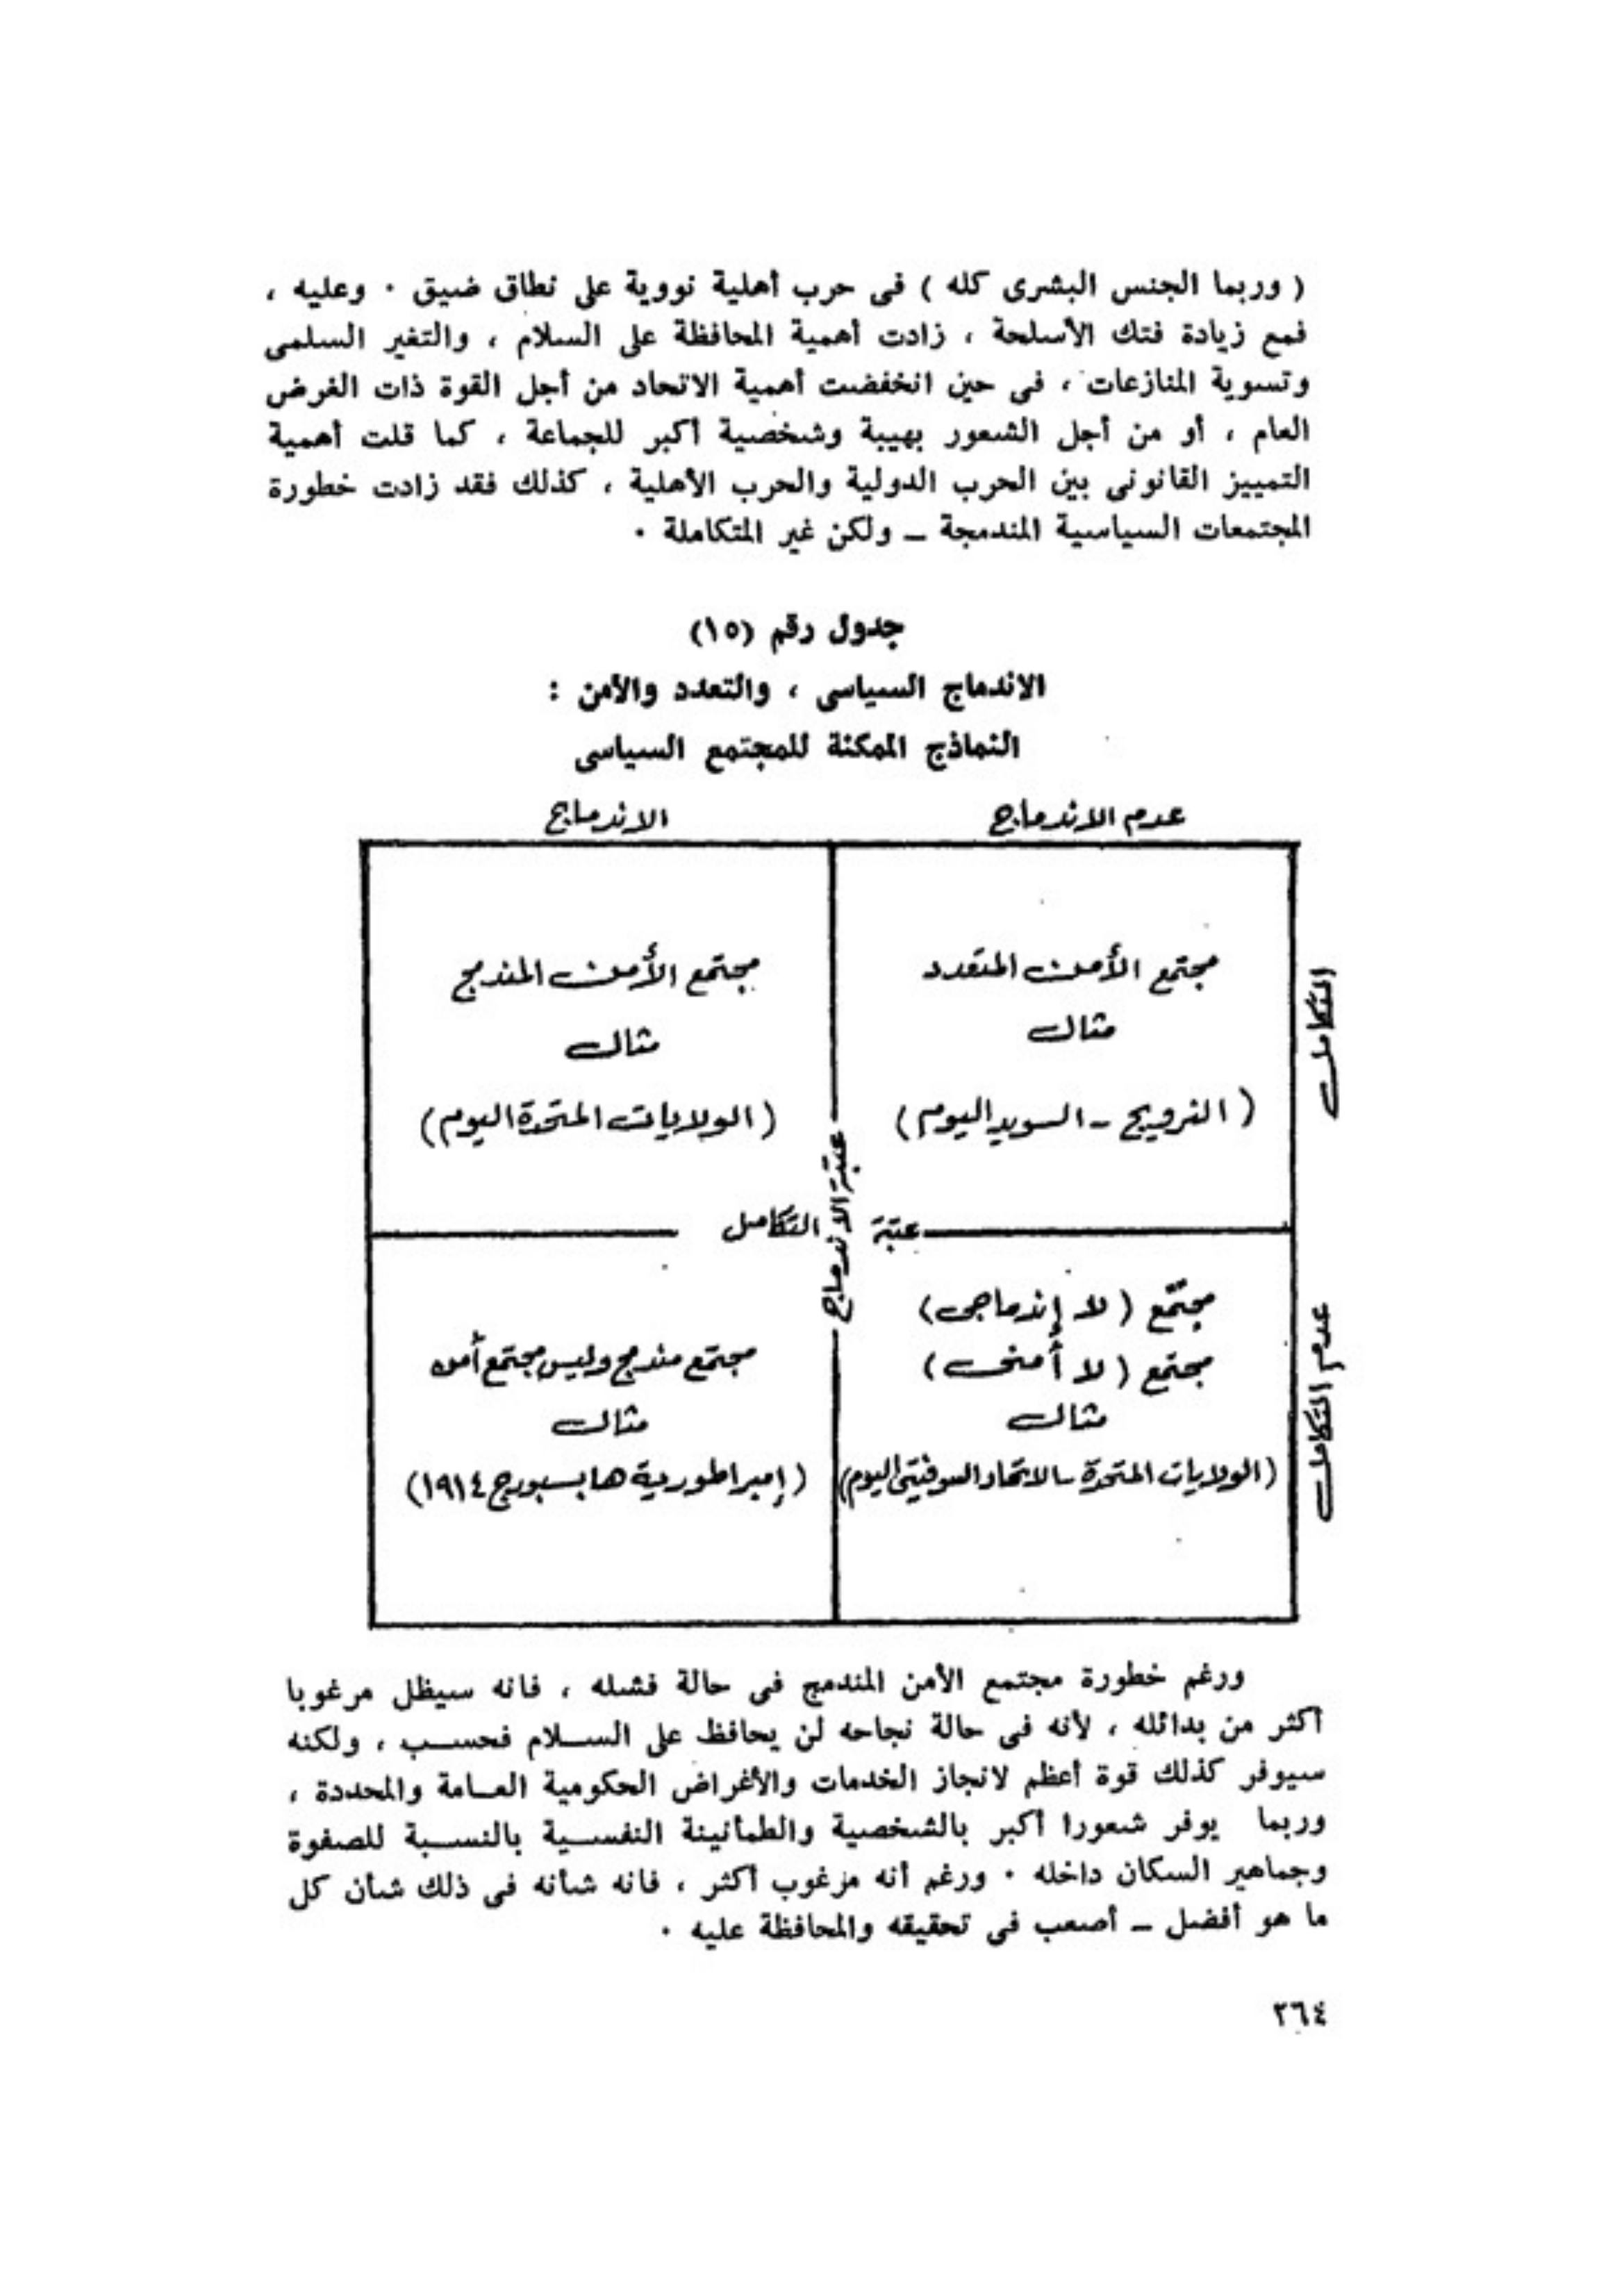 ( وربما الجنس البشرى كله ) فى حرب أهلية نووية على نطاق ضيق ٠ وعليه ،
فمع زيادة فتك الأسلحة ، زادت أهمية المحافظة على السلام ، والتغير السلمى
وتسوية المنازعات ، فى حين انخفضت أهمية الاتحاد من أجل القوة ذات الغرض
العام ، أو من أجل الشعور بهيبة وشخصية أكبر للجماعة ، كما قلت أهمية
التمييز القانونى بين الحرب الدولية والحرب الأهلية ، كذلك فقد زادت خطورة
المجتمعات السياسية المندمجة ــ ولكن غير المتكاملة ٠
جدول رقم (١٥)
الاندماج السياسى ، والتعدد والأمن :
النماذج الممكنة للمجتمع السياسى
عدم الاندماج
الاندماج
التكامل
مجتمع الأمن المتعدد
مثال
( النرويج - السويد اليوم )
مجتمع الأمن المندمج
مثال
(الولايات المتحدة اليوم)
عتبة الاندماج
عتبة التكامل
عدم التكامل
مجتمع ( لا إندماجى )
مجتمع ( لا أمنى )
مثال
(الولايات المتحدة - الاتحاد السوفيتى اليوم)
مجتمع مندمج وليس مجتمع أمن
مثال
(إمبراطورية هابسبورج ١٩١٤)
ورغم خطورة مجتمع الأمن المندمج فى حالة فشله ، فانه سيظل مرغوبا
أكثر من بدائله ، لأنه فى حالة نجاحه لن يحافظ على الســلام فحســب ، ولكنه
سيوفر كذلك قوة أعظم لانجاز الخدمات والأغراض الحكومية العــامة والمحددة ،
وربما يوفر شعورا أكبر بالشخصية والطمأنينة النفســية بالنســبة للصفوة
وجماهير السكان داخله ٠ ورغم أنه مرغوب أكثر ، فانه شأنه فى ذلك شأن كل
ما هو أفضل ــ أصعب فى تحقيقه والمحافظة عليه ٠
٢٦٤